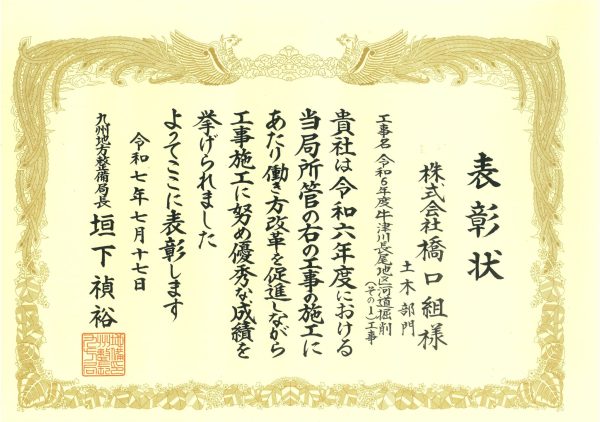 表彰状
株式会社橋口組様
土木部門
工事名 令和6年度牛津川長尾地区河道掘削
(その1)工事
貴社は令和六年度における
当局所管の右の工事の施工に
あたり働き方改革を促進しながら
工事施工に努め優秀な成績を
挙げられました
よってここに表彰します
令和七年七月十七日
九州地方整備局長 垣下禎裕